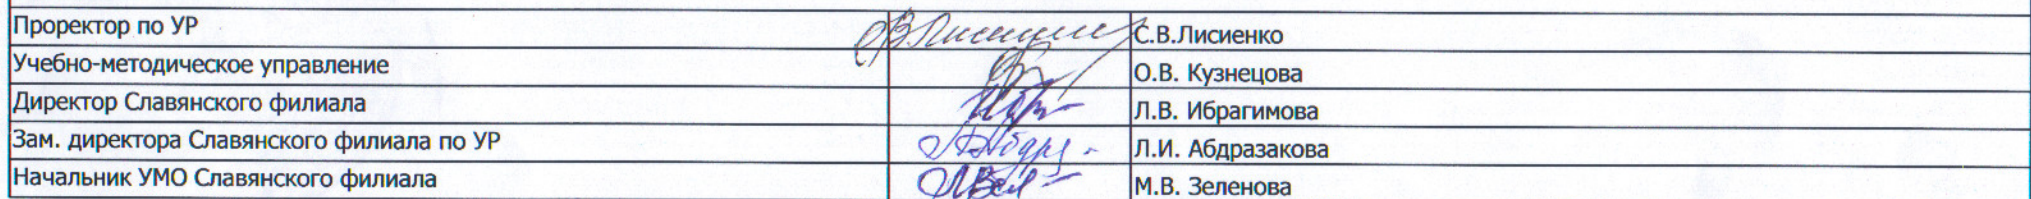 Проректор по УР С.В.Лисиенко
Учебно-методическое управление О.В. Кузнецова
Директор Славянского филиала Л.В. Ибрагимова
Зам. директора Славянского филиала по УР Л.И. Абдразакова
Начальник УМО Славянского филиала М.В. Зеленова